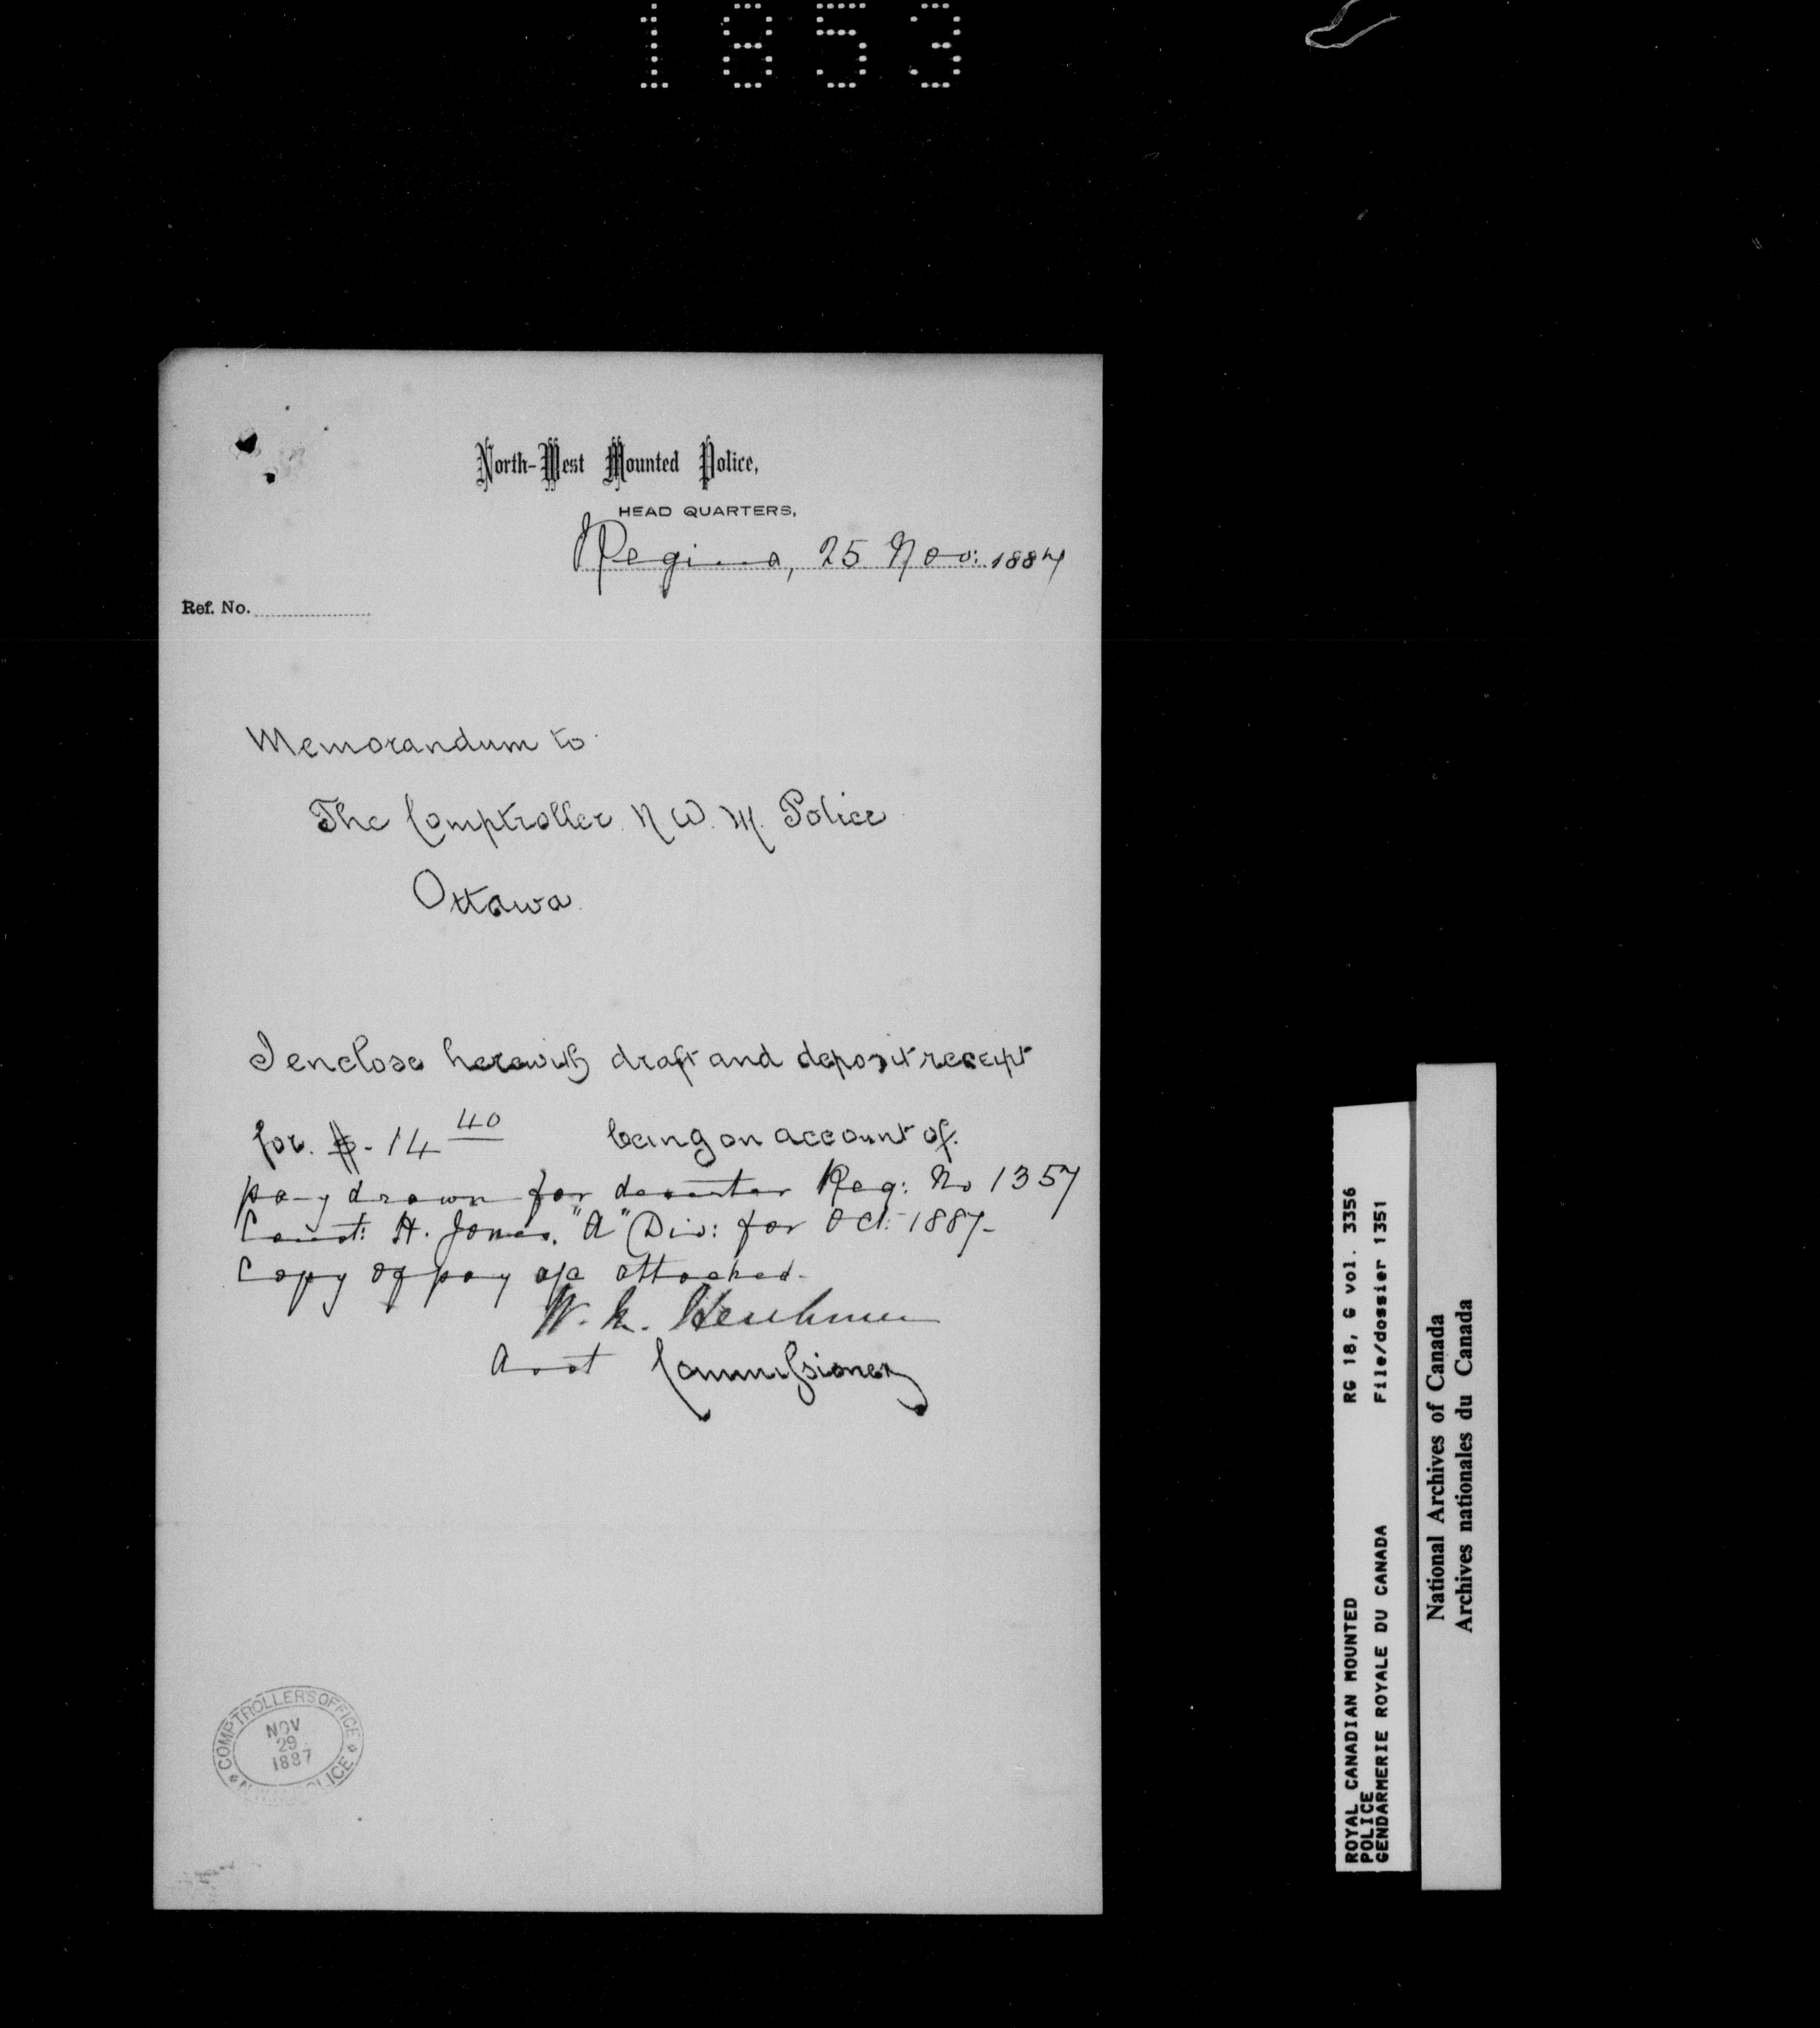 1853
North-West Mounted Police,
HEAD QUARTERS,
Regina, 25 Nov: 1887
Ref. No.
Memorandum to
The Comptroller N W. M. Police
Ottawa
I enclose herewith draft and deposit receipt
for. $-14 40 being on account of.
pay drawn for deserter Reg: No 1357
Const: H. Jones. "A" Div: for Oct: 1887-
Copy of pay a/c attached-
W. M. Herchmer
Asst Commissioner
COMPTROLLER'S OFFICE
NOV
29
1887
N.W.M. POLICE
ROYAL CANADIAN MOUNTED RG 18, G vol. 3356
POLICE
GENDARMERIE ROYALE DU CANADA File/dossier 1351
National Archives of Canada
Archives nationales du Canada